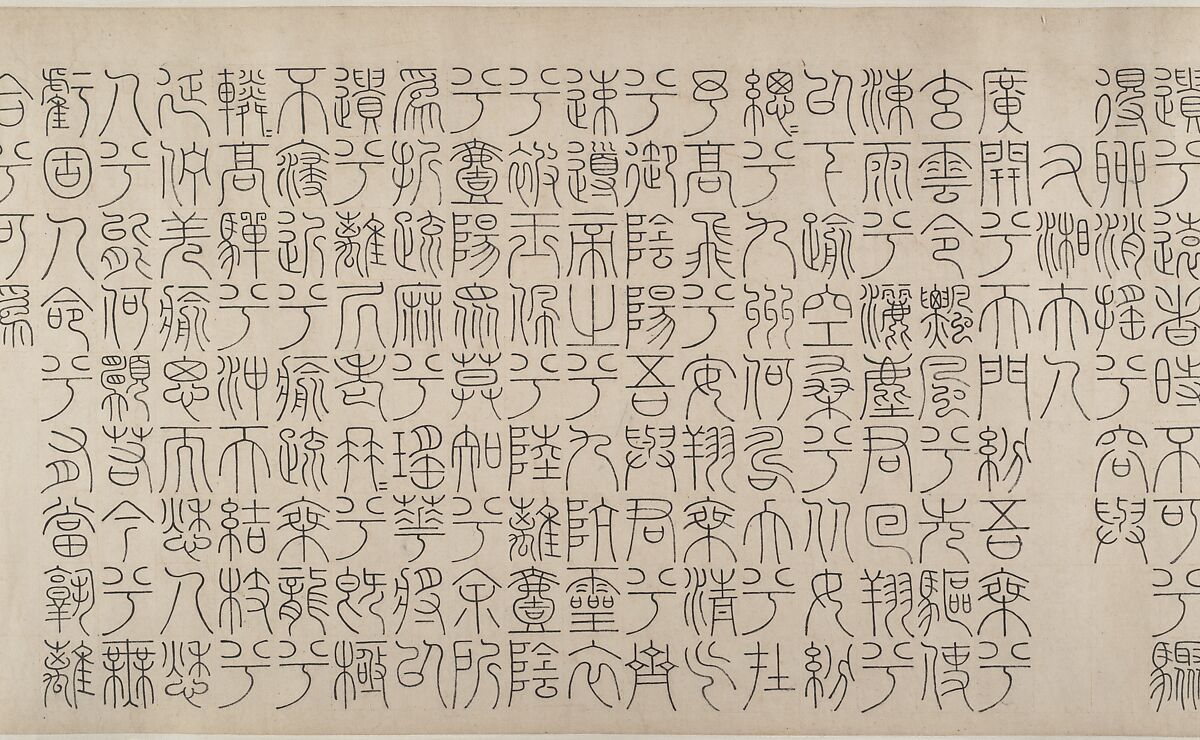 遺兮遠者時不可兮驟
得聊消搖兮容與
右湘夫人
廣開兮天門紛吾乘兮
玄雲令飄風兮先驅使
涷雨兮灑塵君回翔兮
㠯下踰空桑兮从女紛
總=兮九州何壽夭兮在
予高飛兮安翔乘清气
兮御陰陽吾與君兮齊
速導帝之兮九阬靈衣
兮被玉佩兮陸離壹陰
兮壹陽眾莫知兮余所
爲折疏麻兮瑤華將㠯
遺兮離居老冉=兮既極
不寖近兮愈疏乘龍兮
轔=高馳兮沖天結枝兮
延佇羌愈思而愁人愁
人兮何願若今兮無
虧固人命兮有當孰離
合兮可爲